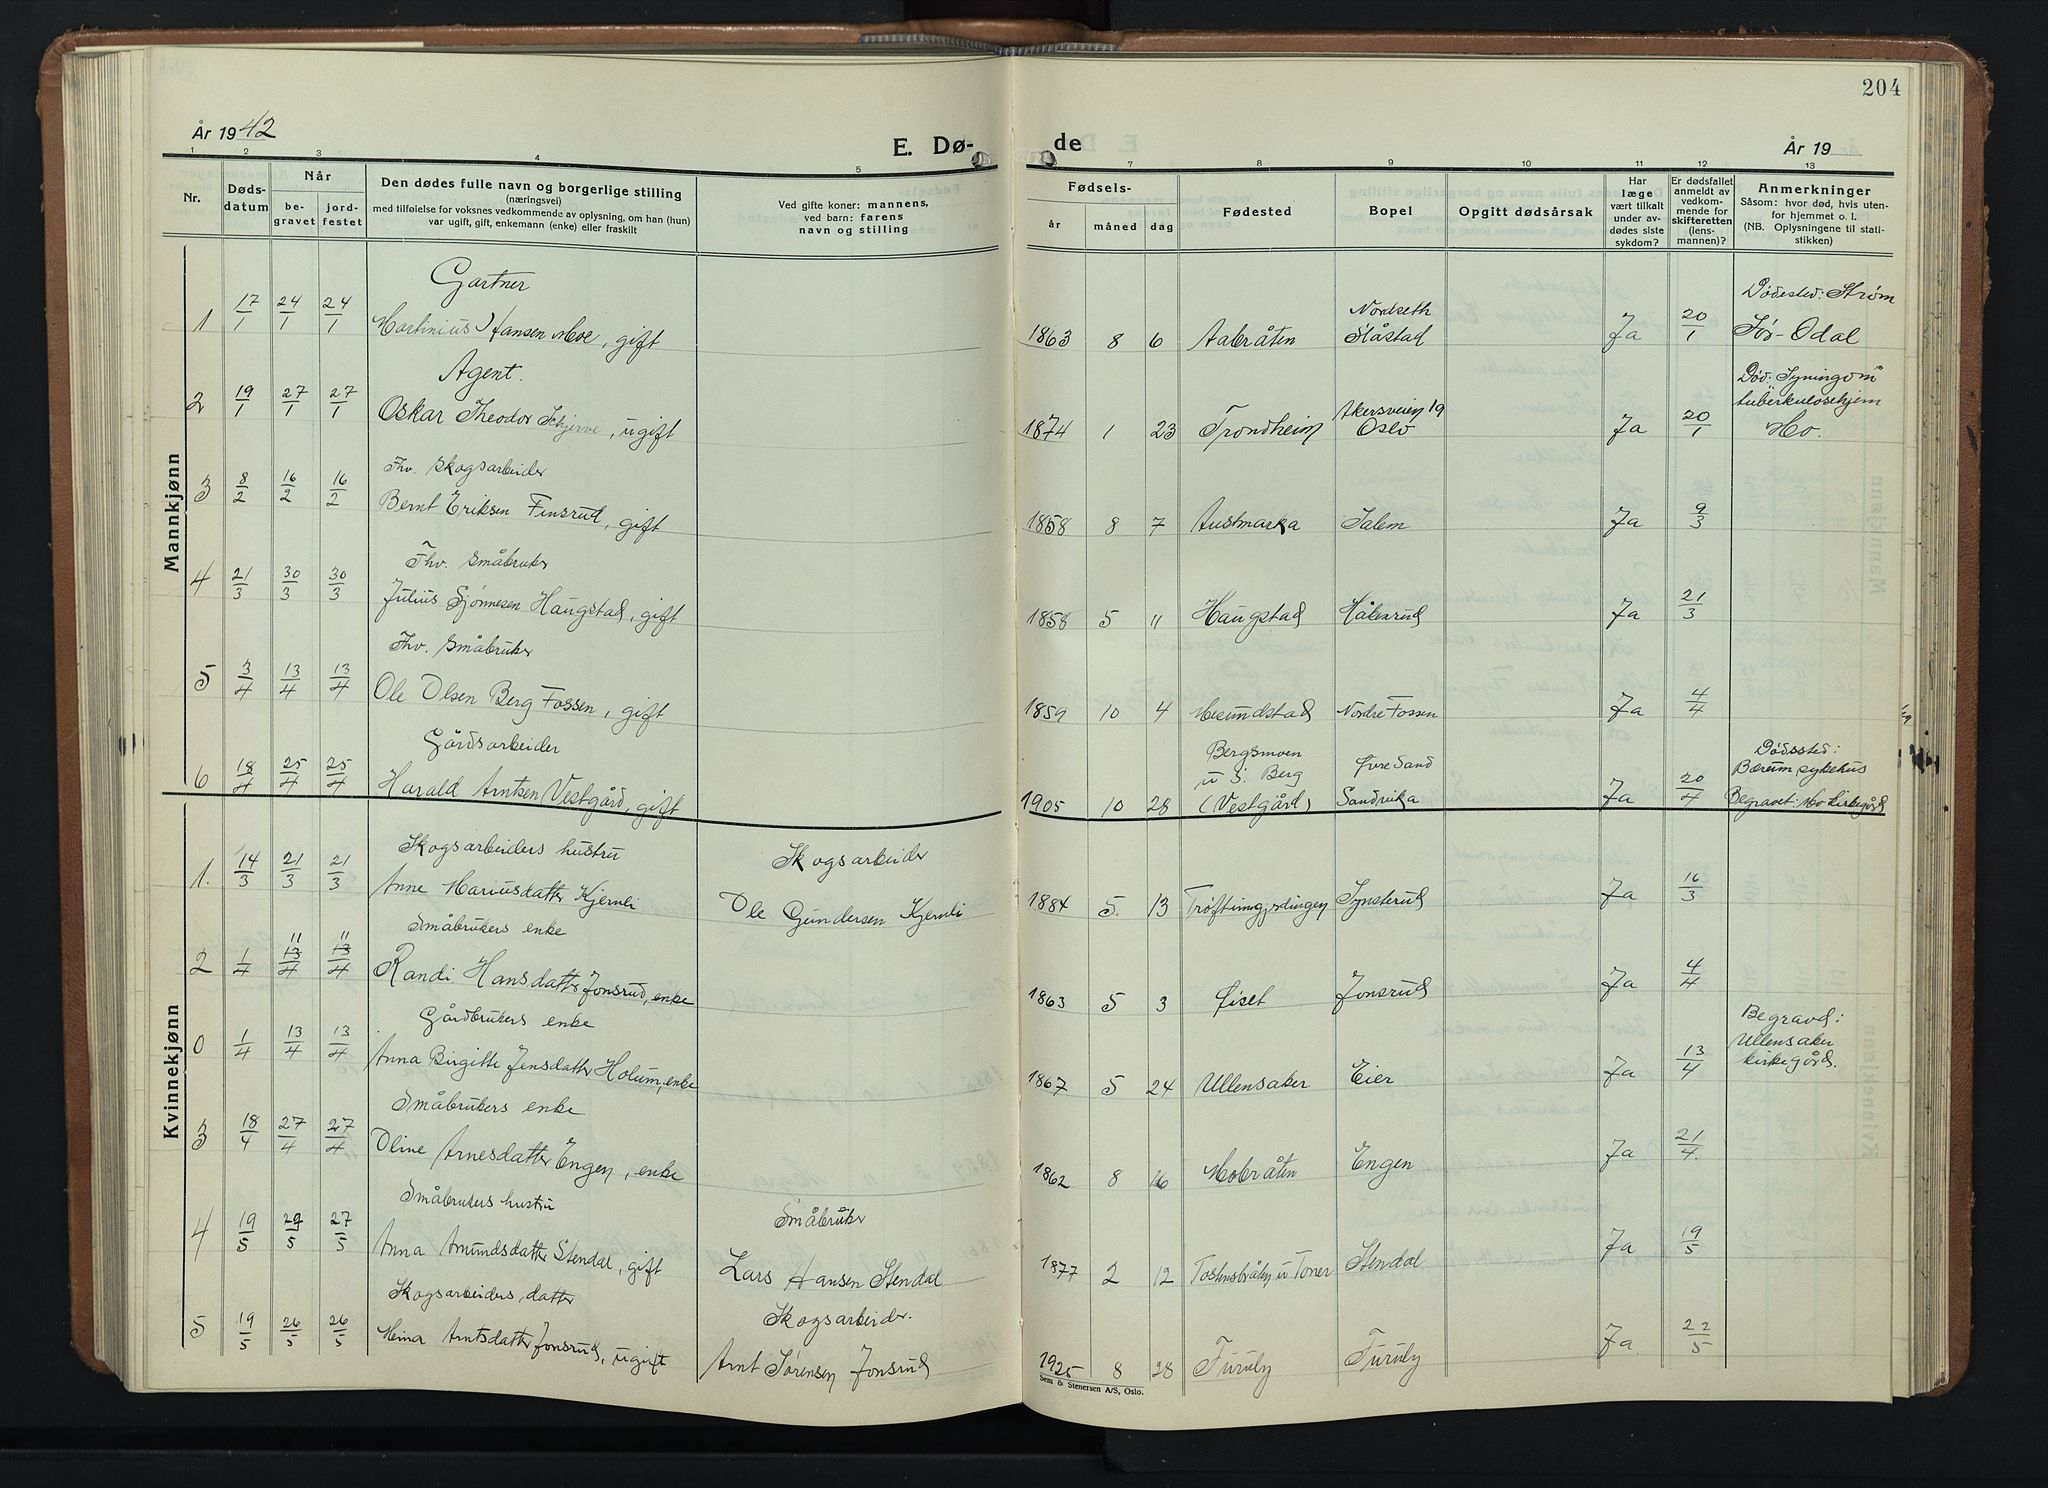 204
År 1942
E. Dø-
de
År 19
1 2 3 4 5 7 8 9 10 11 12 13
Nr.
Døds-
datum
Når
be-
gravet
jord-
festet
Den dødes fulle navn og borgerlige stilling
(næringsvei)
med tilføielse for voksnes vedkommende av oplysning, om han (hun)
var ugift, gift, enkemann (enke) eller fraskilt
Ved gifte koner: mannens,
ved barn: farens
navn og stilling
Fødsels-
år måned dag
Fødested
Bopel
Opgitt dødsårsak
Har
læge
vært tilkalt
under av-
dødes siste
sykdom?
Er dødsfallet
anmeldt av
vedkom-
mende for
skifteretten
(lens-
mannen)?
Anmerkninger
Såsom: hvor død, hvis uten-
for hjemmet o. l.
(NB. Oplysningene til stati-
stikken)
Mannkjønn
Gartner
1 17/1 24/1 24/1 Martinius Hansen Moe, gift 1863 8 6 Aabråten Nordseth Slåstad Ja 20/1 Dødested: Strøm Sør-Odal
Agent.
2 19/1 27/1 27/1 Oskar Theodor Schjerve, ugift 1874 1 23 Trondheim Akersveien 19 Oslo Ja 20/1 Død: "Syningom" tuberkulosehjem Mo.
Fhv. Skogsarbeider
3 8/2 16/2 16/2 Bernt Eriksen Finsrud, gift 1858 8 7 Austmarka Salem Ja 9/3
Fhv. Småbruker
4 21/3 30/3 30/3 Julius Sjønnesen Haugstad, gift 1858 5 11 Haugstad Håkenrud Ja 21/3
Fhv. Småbruker
5 3/4 13/4 13/4 Ole Olsen Berg Fossen, gift 1859 10 4 Mesundstad Nordre Fossen Ja 4/4
Gårdsarbeider
6 18/4 25/4 25/4 Harald Arntsen Vestgård, gift 1905 10 28 Bergsmoen u S. Berg (Vestgård) Øvre Sand Sandvika Ja 20/4 Dødssted: Bærum sykehus Begravet: Mo kirkegård
Kvinnekjønn
Skogsarbeiders hustru Skogsarbeider
1. 14/3 21/3 21/3 Anne Mariusdatter Kjernli Ole Gundersen Kjernli 1884 5. 13 Synsterud Ja 16/3
Småbrukers enke
11 11
2 1/4 13/4 13/4 Randi Hansdatter Jonsrud, enke 1863 5 3 Øiset Jonsrud Ja 4/4
Gårdbrukers enke
0 1/4 13/4 13/4 Anna Birgitte Jensdatter Holum, enke 1867 5 24 Ullensaker Eier Ja 13/4 Begravd: Ullensaker kirkegård.
Småbrukers enke
3 18/4 27/4 27/4 Oline Arnesdatter Engen, enke 1862 8 16 Mobråten Engen Ja 21/4.
Småbrukers hustru Småbruker
4 19/5 27/5 27/5 Anna Amundsdatter Stendal, gift Lars Hansen Stendal 1877 2 12 Tostensbråten u Toner Stendal Ja 19/5
Skogsarbeiders datter Skogsarbeider.
5 19/5 26/5 26/5 Mina Arntsdatter Jonsrud, ugift Arnt Sørensen Jonsrud 1925 8 28 Furuly Furuly Ja 22/5
Sem & Stenersen A/S, Oslo.